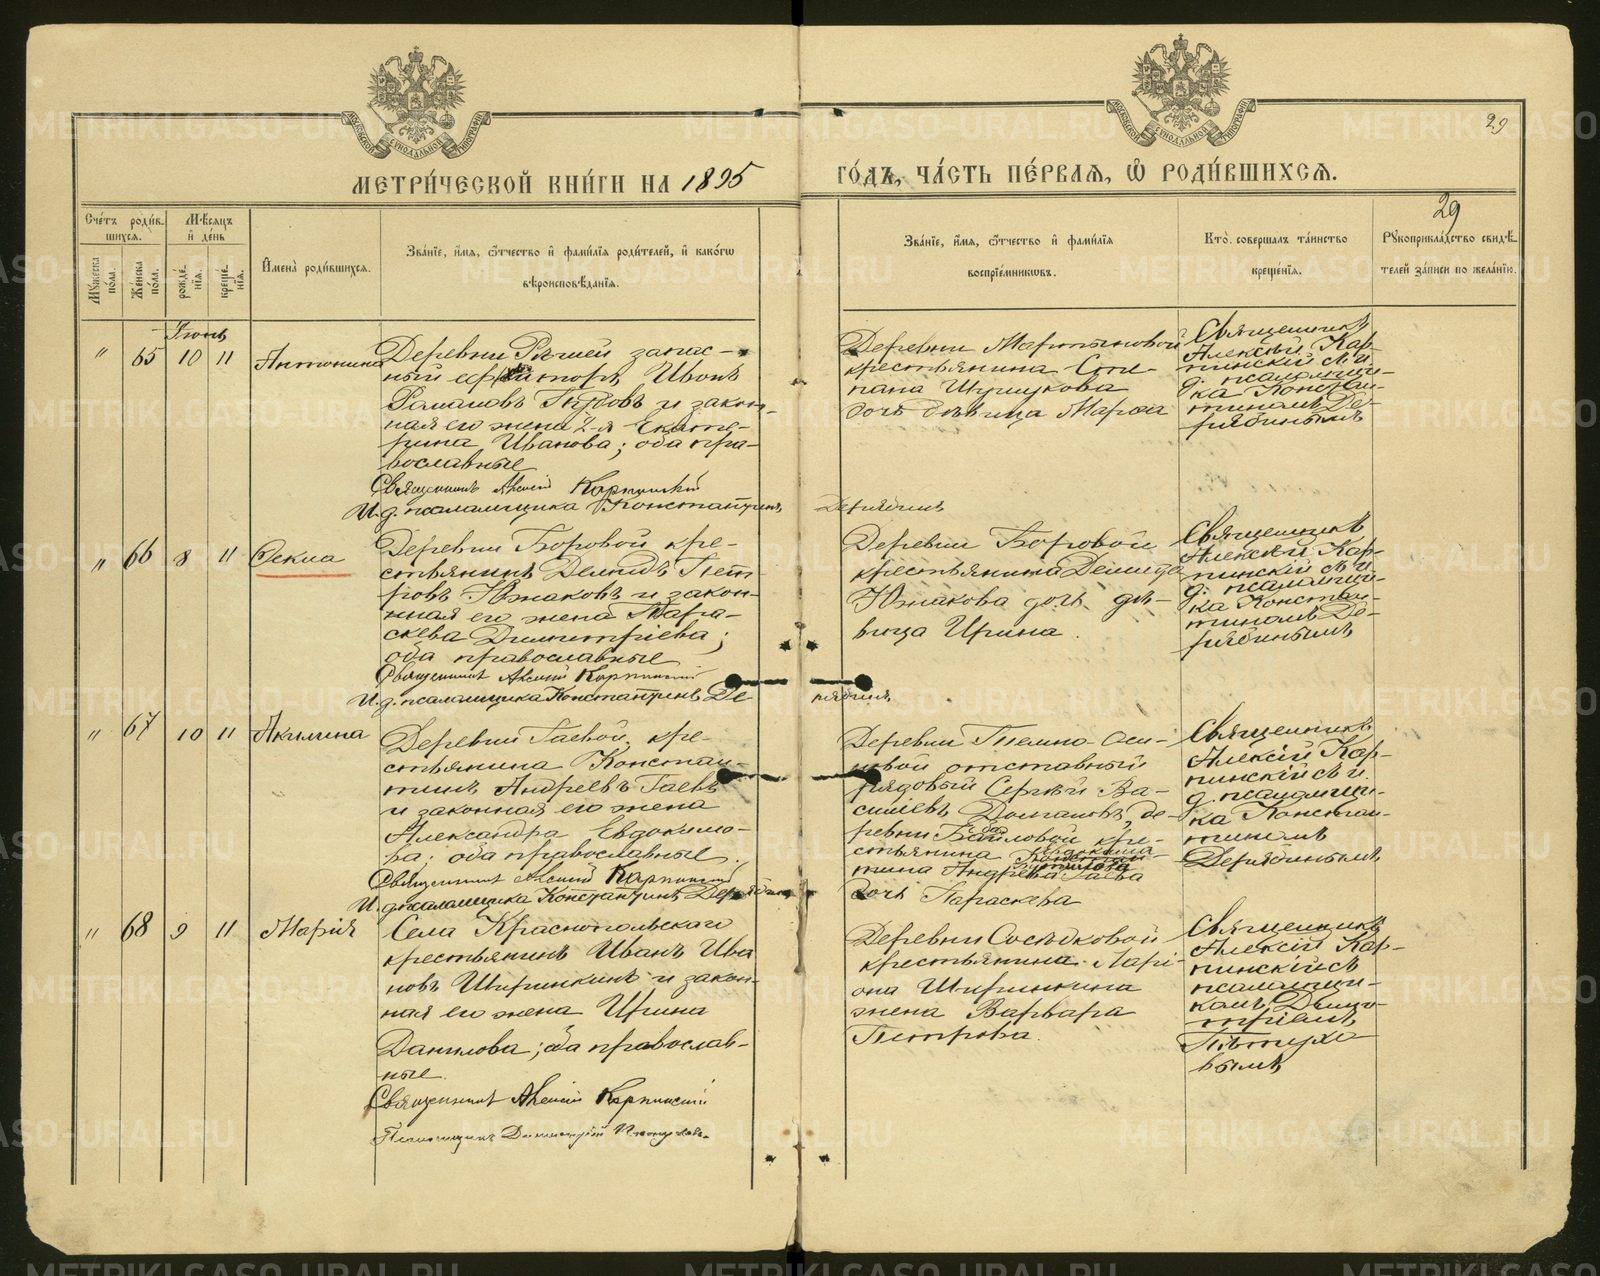 29
МЕТРИ́ЧЕСКОЙ КНИ́ГИ НА 1895
ГО́ДЪ, ЧА́СТЬ ПЕ́РВАѦ, Ѽ РОДИ́ВШИХСѦ.
29
Сче́тъ роди́вшихсѧ.
Мꙋ́жеска по́ла.
Же́нска по́ла.
Мѣ́сѧцъ и҆ де́нь
рожде́нїѧ.
креще́нїѧ.
И҆мена̀ роди́вшихсѧ.
Зва́нїе, и҆́мѧ, ѻ҆́тчество и҆ фами́лїѧ роди́телей, и҆ како́гѡ
вѣроисповѣ́данїѧ.
Зва́нїе, и҆́мѧ, ѻ҆́тчество и҆ фами́лїѧ
воспрїе́мникѡвъ.
Кто̀ соверша́лъ та́инство
креще́нїѧ.
Рꙋкоприкла́дство свидѣ́-
телей за́писи по жела́нїю.
Іюнь
" 65 10 11 Антонина
Деревни Ряшей запас-
ный ефрейторъ Иванъ
Романовъ и закон-
ная его жена 2-я Екате-
рина Иванова; оба пра-
вославные
Священникъ Алексій Карпинскій
И. д. псаломщика Константинъ Дерябинъ
Деревни Мартыновой
крестьянина Сте-
пана Шушукова
дочь девица Марѳа
Священникъ
Алексѣй Кар-
пинскій съ и.
д. псаломщи-
ка Констан-
тиномъ Де-
рябинымъ
" 66 8 11 Ѳекла
Деревни Боровой кре-
стьянинъ Демидъ Пет-
ровъ Южаковъ и закон-
ная его жена Пара-
скева Димитріева;
оба православные
Священникъ Алексій Карпинскій
И. д. псаломщика Константинъ Де рябинъ
Деревни Боровой
крестьянина Демида
Южакова дочь дѣ-
вица Ирина.
Священникъ
Алексѣй Кар-
пинскій съ и.
д. псаломщи-
ка Констан-
тиномъ Де-
рябинымъ
" 67 10 11 Акилина
Деревни Гаевой, кре-
стьянина Констан-
тинъ Андреевъ Гаевъ
и законная его жена
Александра Евдокимо-
ва; оба православные.
Священникъ Алексій Карпинскій
И. д. псаломщика Константинъ Дерябинъ
Деревни Темно-Оси-
новой отставный
рядовый Сергѣй Ва-
сильевъ де-
ревни кре-
стьянина
Андреева Гаева
дочь Параскева
Священникъ
Алексій Кар-
пинскій съ и.
д. псаломщи-
ка Констан-
тиномъ
Дерябинымъ
" 68 9 11 Марія
Села Краснопольскаго
крестьянинъ Иванъ Ива
новъ Ширинкинъ и закон-
ная его жена Ирина
Данилова; оба православ-
ные.
Священникъ Алексій Карпинскій
Псаломщикъ Димитрій Пѣтуховъ.
Деревни Сосѣдковой
крестьянина Ларі-
она Ширинкина
жена Варвара
Петрова.
Священникъ
Алексій Кар-
пинскій съ
псаломщи-
комъ Дими-
тріемъ
Пѣтухо-
вымъ